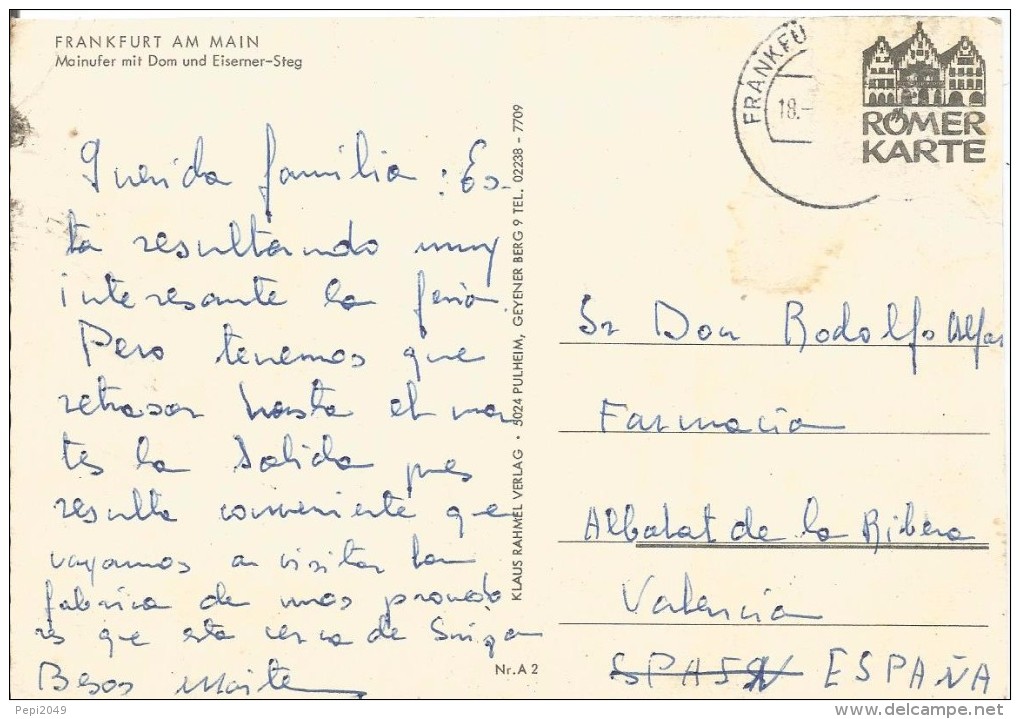 FRANKFURT AM MAIN
Mainufer mit Dom und Eiserner-Steg
Querida familia: Es-
ta resultando muy
interesante la feria
Pero tenemos que
retrasar hasta el mar
tes la salida pues
resulta conveniente que
vayamos a visitar la
fabrica de unos provedo
res que esta cerca de Suiza
Besos Maite
KLAUS RAHMEL VERLAG • 5024 PULHEIM, GEYENER BERG 9 TEL. 02238 - 7709
Nr. A 2
FRANKFU
18.-
RÖMER
KARTE
Sr Don Rodolfo Alfar
Farmacia
Albalat de la Ribera
Valencia
ESPAÑA
Pepi2049
delcampe.net